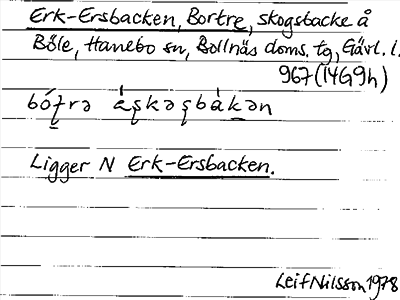 Erk-Ersbacken, Bortre, skogsbacke å
Böle, Hanebo sn, Bollnäs doms. tg, Gävl. l.
967 (14G9h)
Ligger N Erk-Ersbacken.
Leif Nilsson 1978